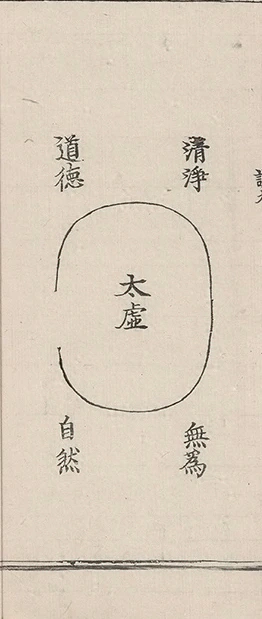 清淨
無為
太虛
道德
自然